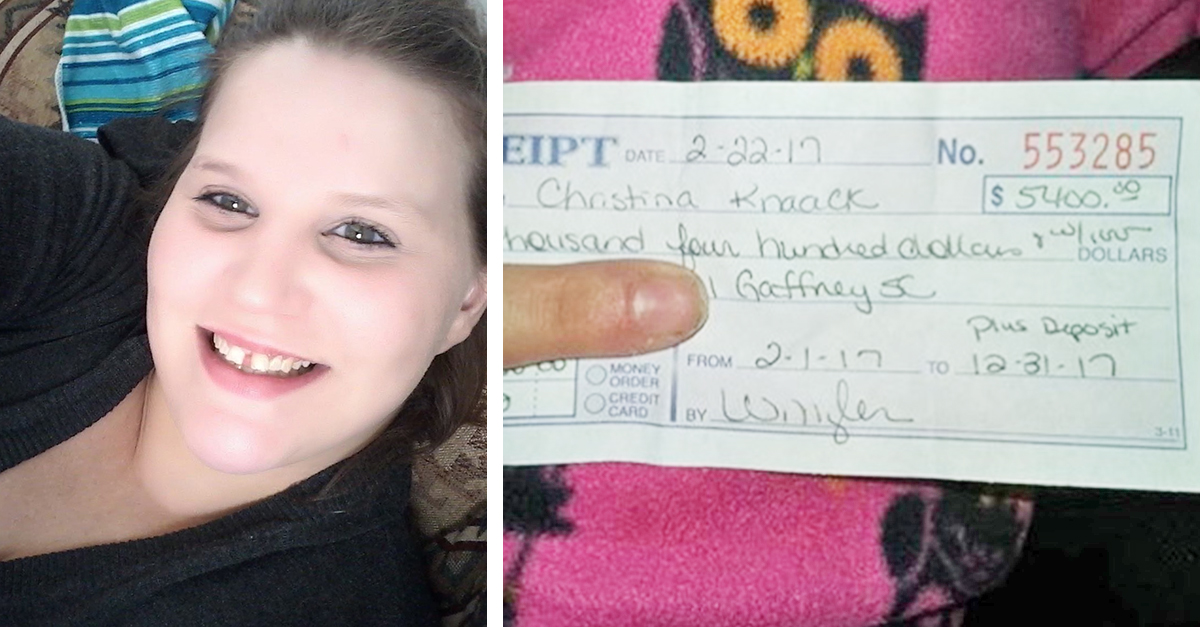 EIPT DATE 2-22-17 No. 553285
Christina Knaack $ 5400.00
housand four hundred dollars DOLLARS
1 Gaffney SC
Plus Deposit
MONEY ORDER FROM 2-1-17 TO 12-31-17
CREDIT CARD BY
3-11